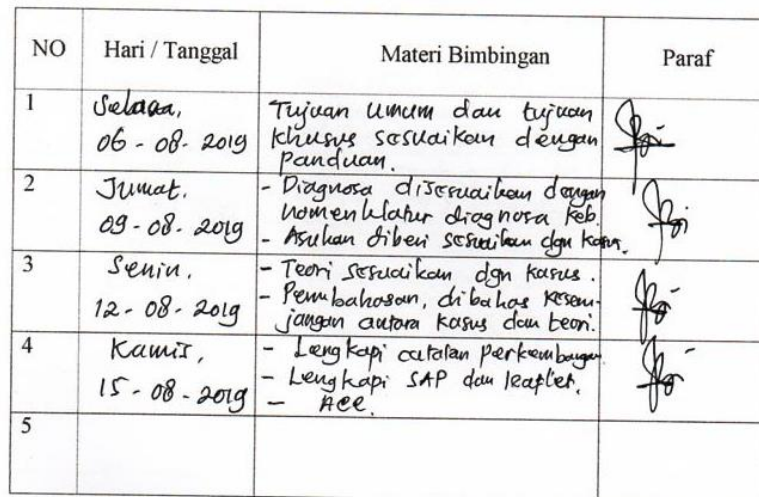 NO Hari / Tanggal Materi Bimbingan Paraf
1 Selasa, Tujuan umum dan tujuan
06 - 08 - 2019 khusus sesuaikan dengan
panduan.
2 Jumat. - Diagnosa disesuaikan dengan
09 - 08 - 2019 nomenklatur diagnosa keb.
- Asuhan diberi sesuaikan dgn kasus.
3 Senin, - Teori sesuaikan dgn kasus.
12 - 08 - 2019 - Pembahasan, dibahas kesen-
jangan antara kasus dan teori.
4 Kamis, - Lengkapi catatan perkembangan
15 - 08 - 2019 - Lengkapi SAP dan leaflet.
- ACC.
5